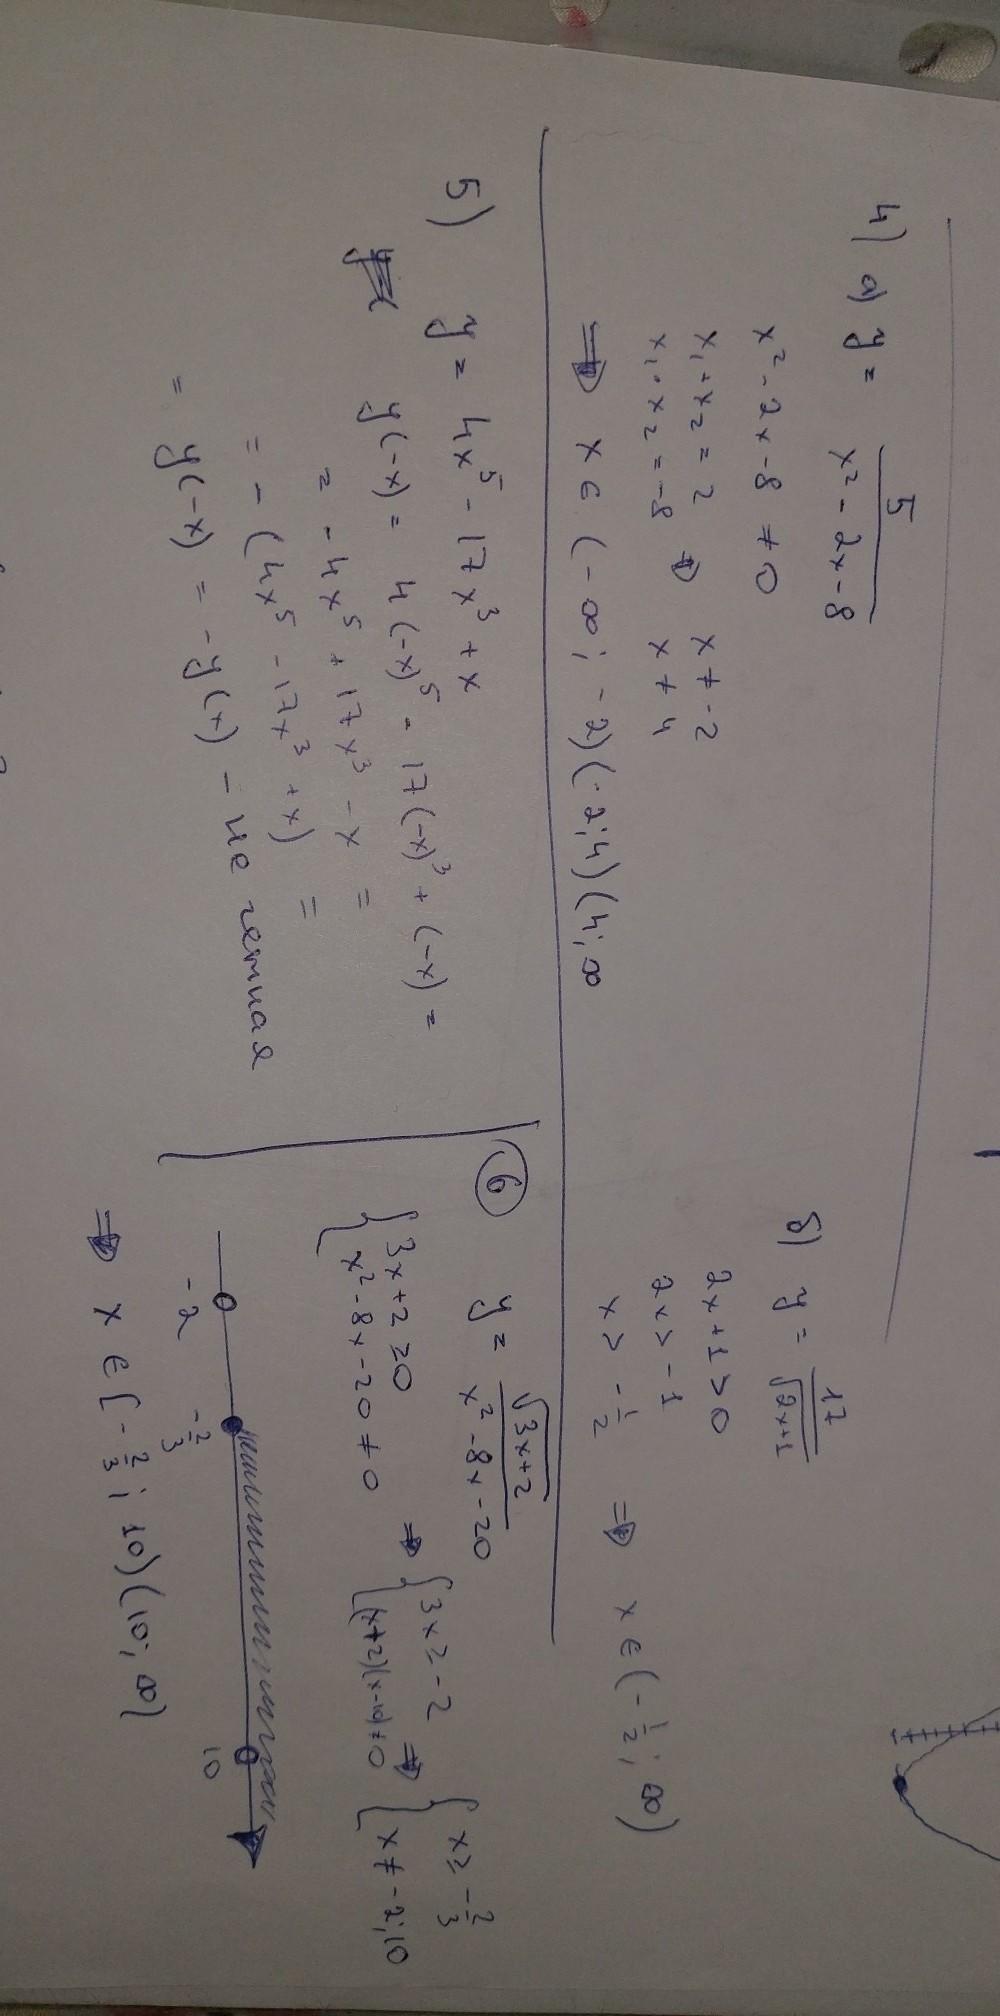 4) а) y = 5 / (x² - 2x - 8)
x² - 2x - 8 ≠ 0
x₁ + x₂ = 2
x₁ · x₂ = -8 ⇒ x ≠ -2
x ≠ 4
⇒ x ∈ (-∞; -2)(-2;4)(4; ∞
б) y = 17 / √(2x+1)
2x+1 > 0
2x > -1
x > -1/2 ⇒ x ∈ (-1/2; ∞)
5) y = 4x⁵ - 17x³ + x
y(-x) = 4(-x)⁵ - 17(-x)³ + (-x) =
= -4x⁵ + 17x³ - x =
= -(4x⁵ - 17x³ + x) =
= y(-x) = -y(x) - не четная
6 y = √(3x+2) / (x² - 8x - 20)
{ 3x+2 ≥ 0
{ x² - 8x - 20 ≠ 0 ⇒ { 3x ≥ -2
{ (x+2)(x-10) ≠ 0 ⇒ { x ≥ -2/3
{ x ≠ -2; 10
-2 -2/3 10
⇒ x ∈ [-2/3; 10)(10; ∞)